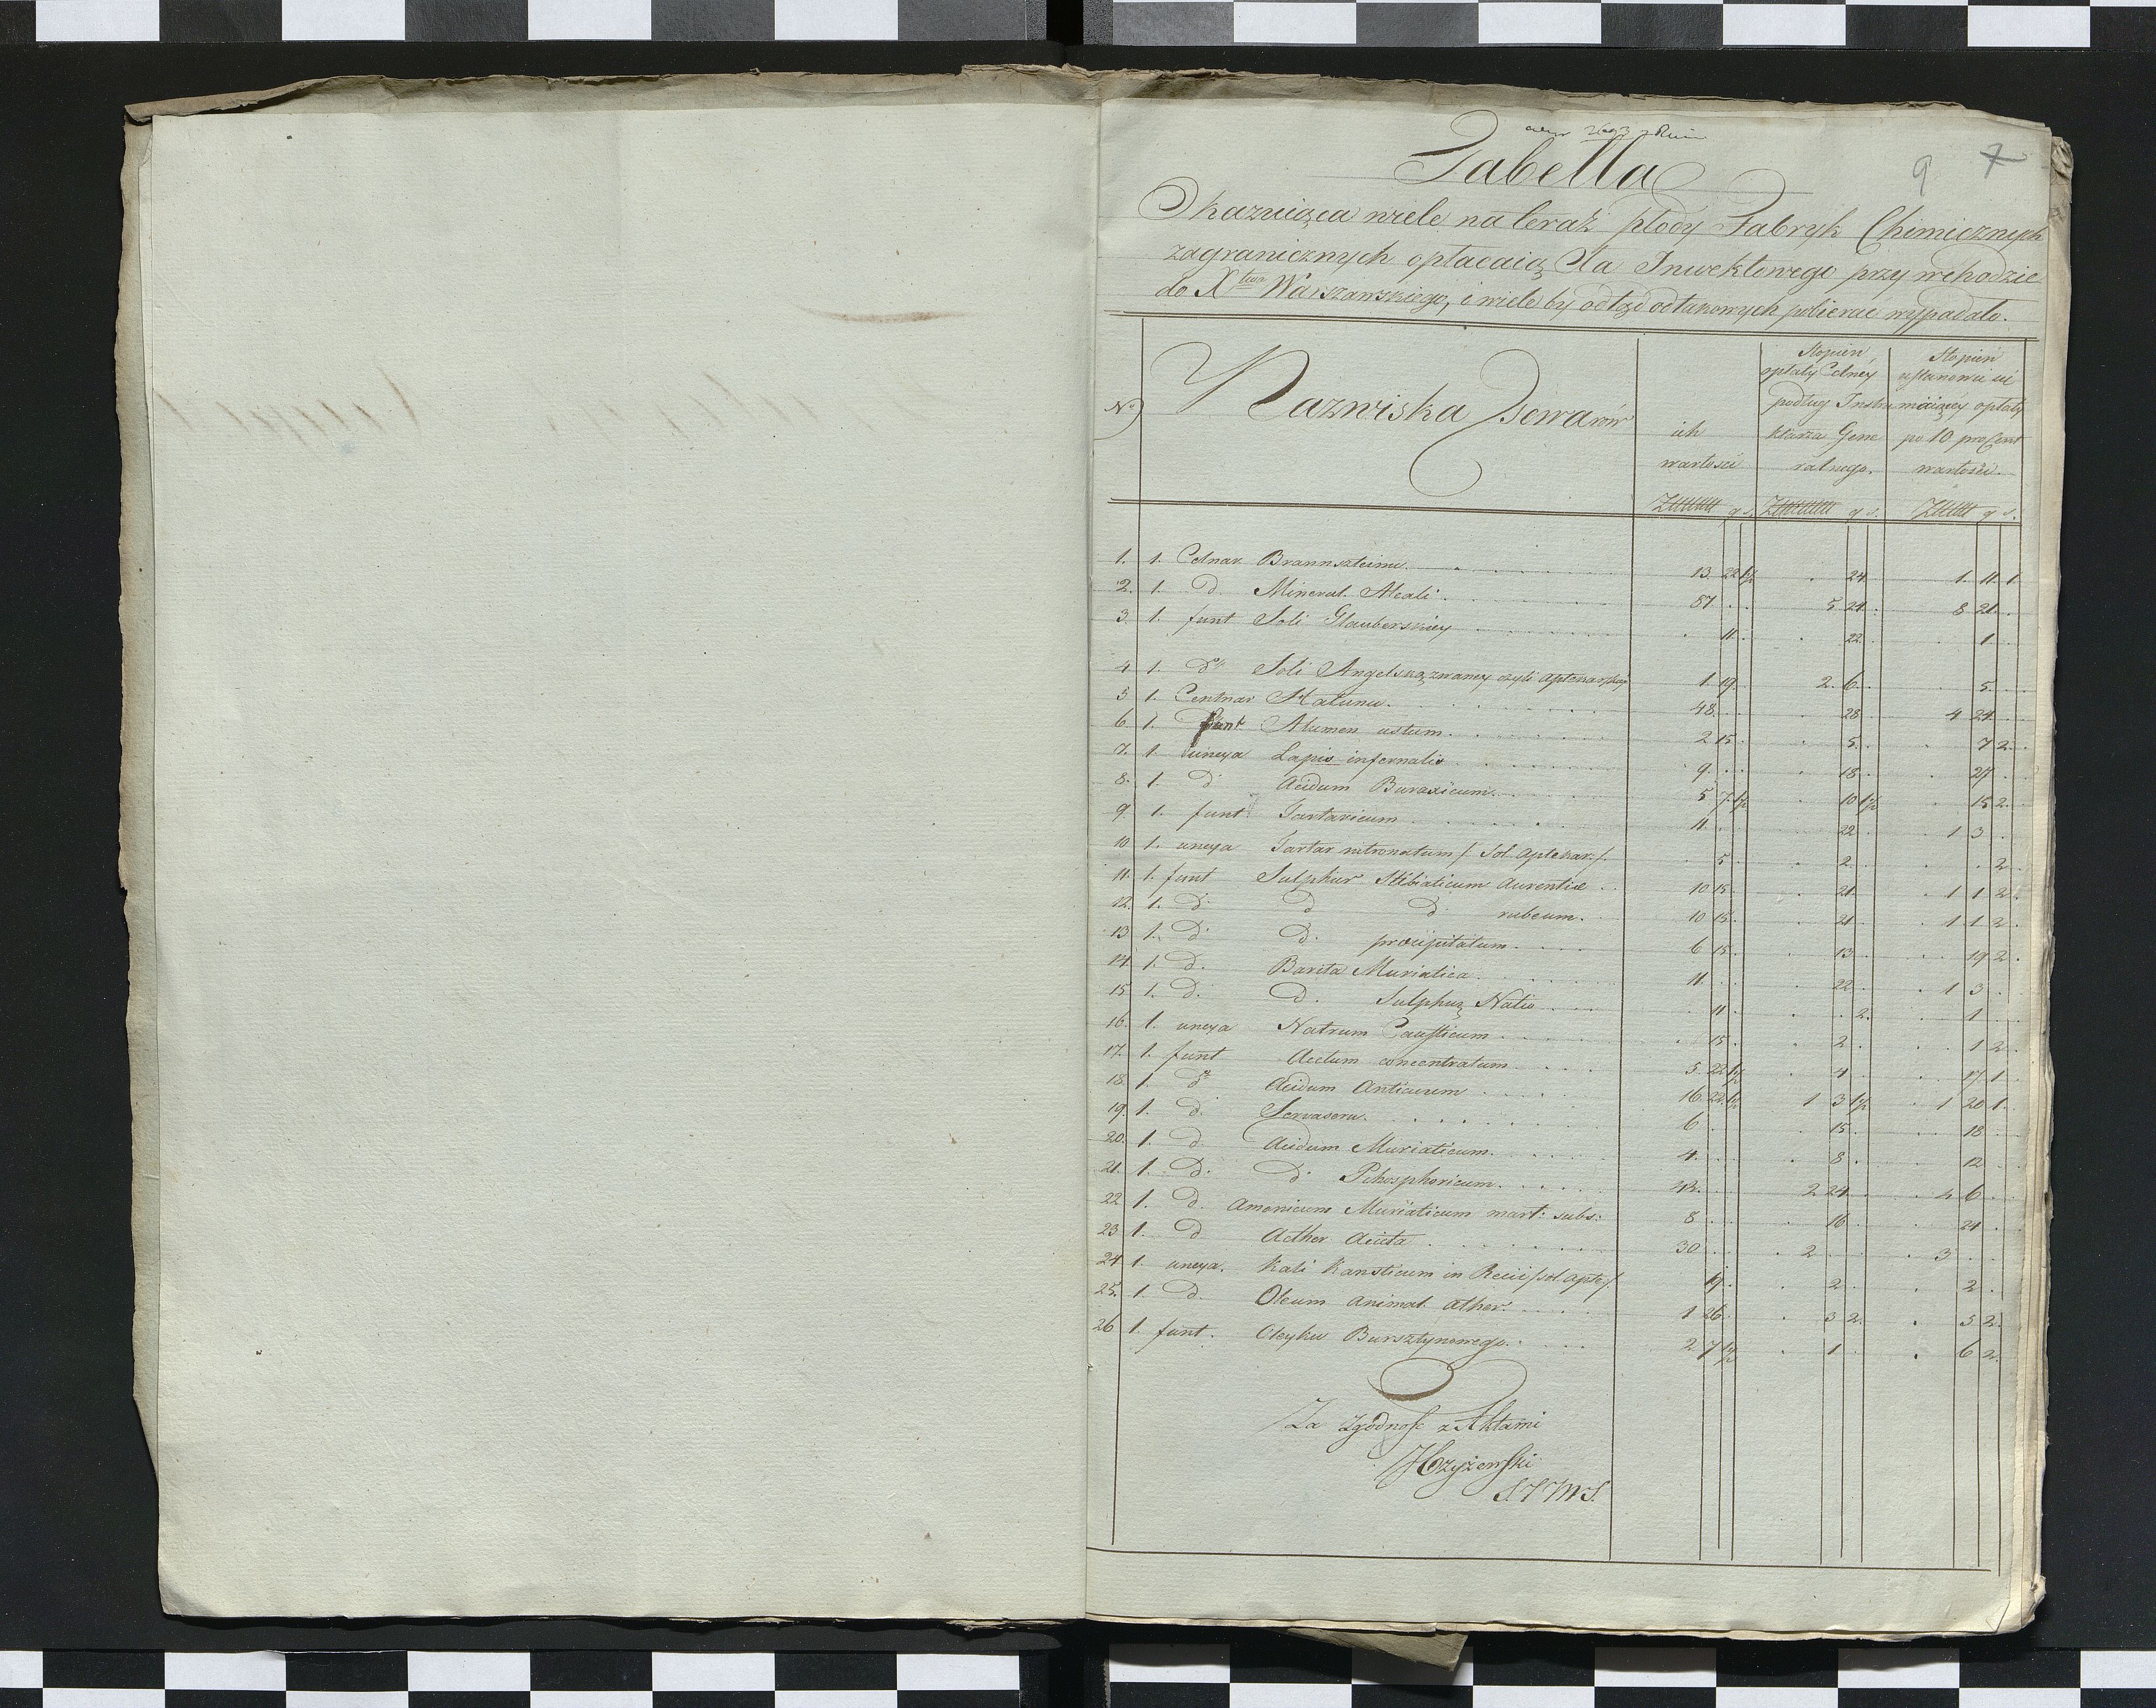 9 7
Tabella
Okazuiąca wiele na teraz płody Fabryk Chimicznych
zagranicznych opłacaią Cła Inwektowego przy wchodzie
do X<sup>twa</sup> Warszawskiego, i wiele by odtąd od takowych pobierać wypadało.
N<sup>o</sup> Nazwiska Towarów
ich wartości
Stopień opłaty Celney podług Instruktarza Generalnego.
Stopień ustanowić się maiącey opłaty po 10 pro Cent wartości.
g s. g s. g s.
1. 1. Cetnar Braunszteinu 13. 22 1/2 . 24. 1. 11. 1
2. 1. d. Mineral. Alcali 87 . . 5 24. 8 21.
3. 1. funt Soli Glauberskiey . 11. . 22. . 1.
4 1. d<sup>o</sup> Soli Angelską zwaney czyli aptekarskiey 1. 19. 2. 6. . 5.
5 1. Centnar Hałunu. 48. . 28 4 24
6. 1. funt Alumen ustum. 2 15. . 5. . 7 2.
7. 1. uncya Lapis infernalis 9. . 18. . 27
8. 1. d. Acidum Buraxicum. 5 7. 1/2 . 10 1/2 . 15 2.
9 1. funt Tartaricum 11. . 22. . 1 3 .
10 1. uncya Tartar nitronatum /: Sol. Aptekar :/ . 5 . 2. . . 2.
11. 1. funt Sulphur Stibiaticum Aurentiæ 10 15. . 21. . 1 1 2.
12. 1. d. d d. rubeum. 10 15. . 21. . 1 1 2.
13 1. d. d. præcipitatum 6 15. . 13. . 19 2.
14. 1. d. Barita Muriatica 11. . 22. . 1 3
15 1. d. d. Sulphuz Natio . 11 . . 2. . 1
16. 1. uncya Natrum Causticum . 15. . 2. . 1 2.
17. 1. funt Acetum concentratum 5. 22 1/2 . 4 . 17. 1.
18. 1. d<sup>o</sup> Acidum Aceticum 16. 22. 1/2 1 3 1/2 . 1 20 1.
19. 1. d. Serwaseru. 6 . . 15. . 18
20. 1. d. Acidum Muriaticum. 4. . 8. . 12
21. 1. d. d. Pchosphoricum. 42. 2 24. . 4 6
22 1. d. Amonicum Muriaticum mart: subs: 8 . 16 . . 24 .
23 1. d Aether Aceta 30 . 2 . 3
24 1. uncya. Kali Kausticum in Recii /: sol. apte :/ 19. . 2. . 2.
25. 1. d. Oleum animal. ather. 1 26. . 3 2. . 5 2.
26 1. funt. Oleyku Bursztynowego. 2 7 1/2 . 1 . 6 2.
Za zgodność z Aktami